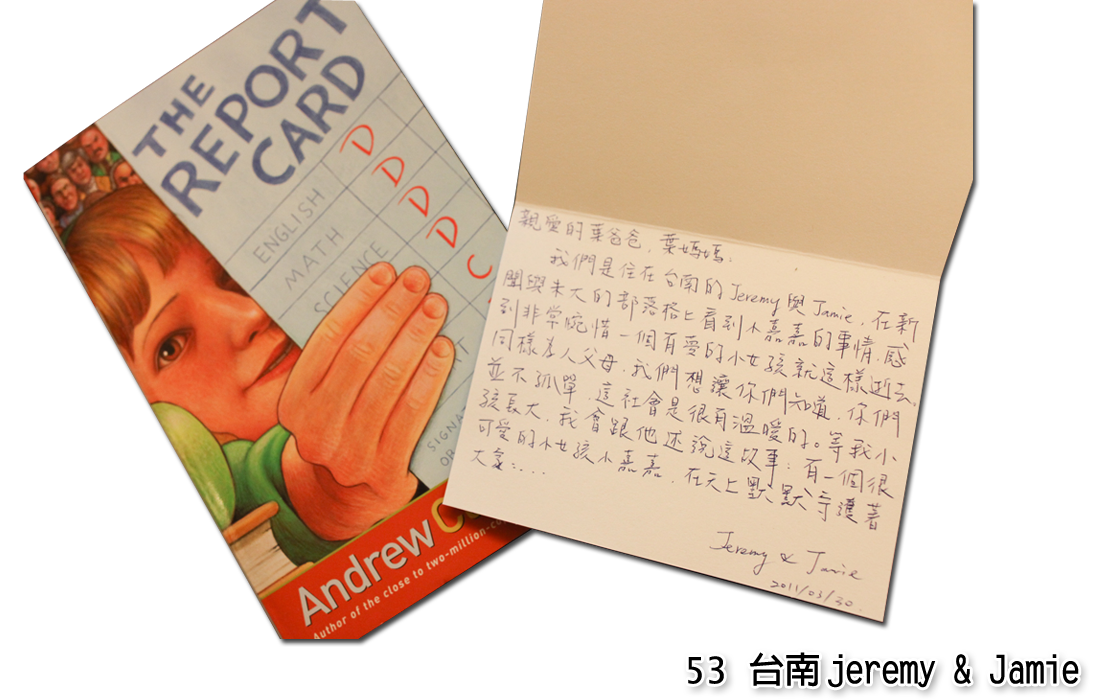 THE
REPORT
CARD
ENGLISH D
MATH D
SCIENCE D
D
C
SIGNAT
OB
Andrew C
Author of the close to two-million-co
親愛的葉爸爸，葉媽媽：
我們是住在台南的Jeremy與Jamie，在新
聞與朱大的部落格上看到小嘉嘉的事情，感
到非常惋惜一個有愛的小女孩就這樣逝去。
同樣為人父母，我們想讓你們知道，你們
並不孤單，這社會是很有溫暖的。等我小
孩長大，我會跟他述說這故事：有一個很
可愛的小女孩小嘉嘉，在天上默默守護著
大家....
Jeremy & Jamie
2011/03/30
53 台南jeremy & Jamie